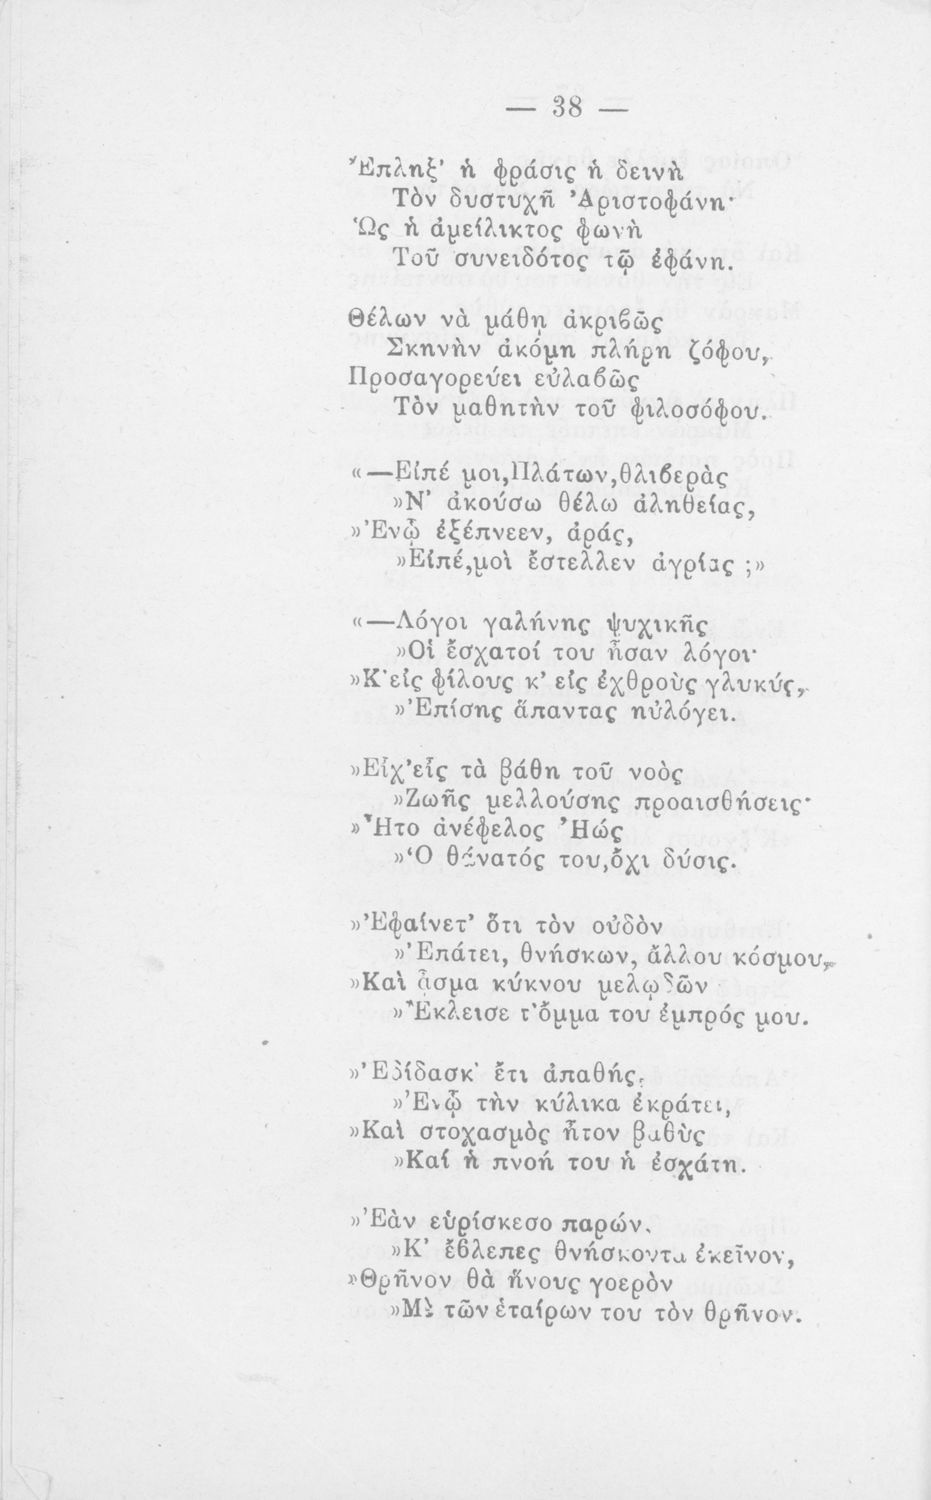 — 38 —
Ἔπληξ' ἡ φράσις ἡ δεινὴ
Τὸν δυστυχῆ Ἀριστοφάνη·
Ὡς ἡ ἀμείλικτος φωνὴ
Τοῦ συνειδότος τῷ ἐφάνη.
Θέλων νὰ μάθῃ ἀκριβῶς
Σκηνὴν ἀκόμη πλήρη ζόφου,
Προσαγορεύει εὐλαβῶς
Τὸν μαθητὴν τοῦ φιλοσόφου.
«—Εἰπέ μοι,Πλάτων,θλιβερὰς
»Ν' ἀκούσω θέλω ἀληθείας,
»Ἐνῷ ἐξέπνεεν, ἀράς,
»Εἰπέ,μοὶ ἔστελλεν ἀγρίας ;»
«—Λόγοι γαλήνης ψυχικῆς
»Οἱ ἔσχατοί του ἦσαν λόγοι·
»Κ'εἰς φίλους κ' εἰς ἐχθροὺς γλυκύς,
»Ἐπίσης ἅπαντας ηὐλόγει.
»Εἶχ'εἰς τὰ βάθη τοῦ νοὸς
»Ζωῆς μελλούσης προαισθήσεις·
»Ἦτο ἀνέφελος Ἠώς
»Ὁ θάνατός του,ὄχι δύσις.
»Ἐφαίνετ' ὅτι τὸν οὐδὸν
»Ἐπάτει, θνήσκων, ἄλλου κόσμου,
»Καὶ ᾆσμα κύκνου μελῳδῶν
»Ἔκλεισε τ'ὄμμα του ἐμπρός μου.
»Ἐδίδασκ' ἔτι ἀπαθής,
»Ἐνῷ τὴν κύλικα ἐκράτει,
»Καὶ στοχασμὸς ἦτον βαθὺς
»Καί ἡ πνοή του ἡ ἐσχάτη.
»Ἐὰν εὑρίσκεσο παρών,
»Κ' ἔβλεπες θνήσκοντα ἐκεῖνον,
»Θρῆνον θὰ ἥνους γοερὸν
»Μὲ τῶν ἑταίρων του τὸν θρῆνον.